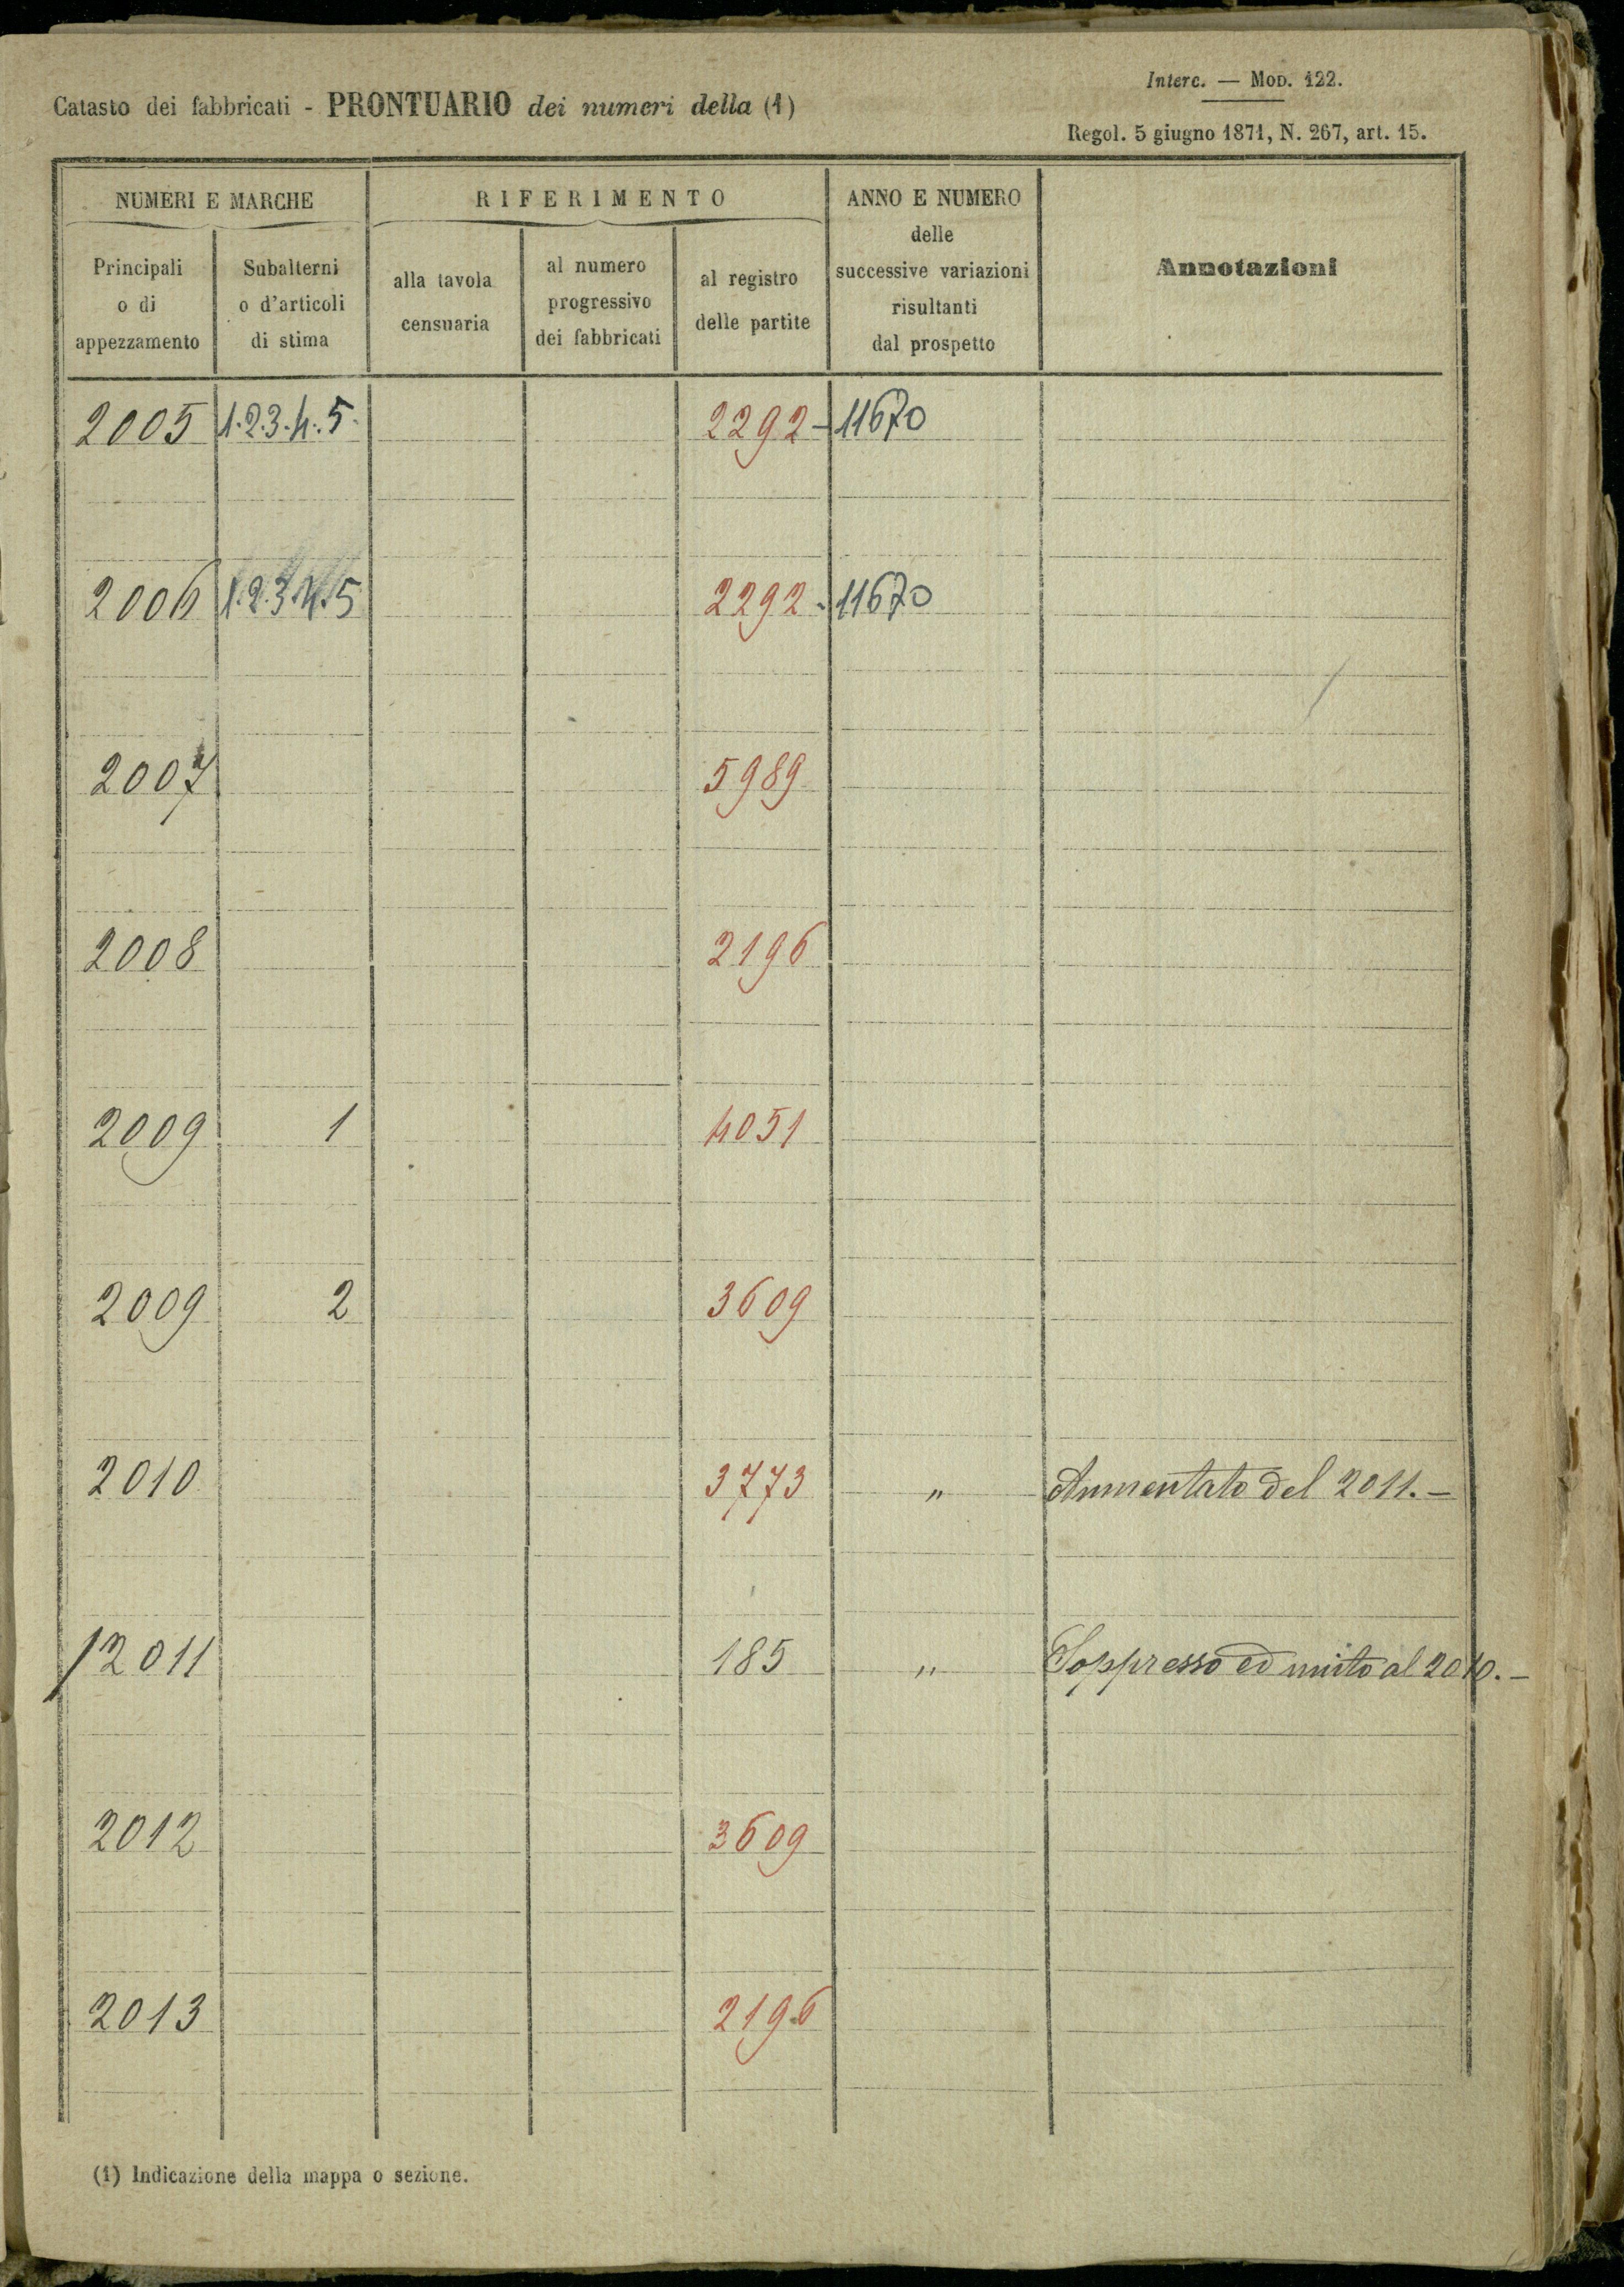 Interc. — MOD. 122.
Catasto dei fabbricati - PRONTUARIO dei numeri della (1)
Regol. 5 giugno 1871, N. 267, art. 15.
NUMERI E MARCHE RIFERIMENTO ANNO E NUMERO
delle
successive variazioni
risultanti
dal prospetto
Annotazioni
Principali
o di
appezzamento
Subalterni
o d'articoli
di stima
alla tavola
censuaria
al numero
progressivo
dei fabbricati
al registro
delle partite
2005 1.2.3.4.5. 2292 - 11670
2006 1.2.3.4.5 2292 - 11670
2007 5989
2008 2196
2009 1 4051
2009 2 3609
2010 3773 " Aumentato del 2011. —
2011 185 " Soppresso ed unito al 2010. —
2012 3609
2013 2196
(1) Indicazione della mappa o sezione.